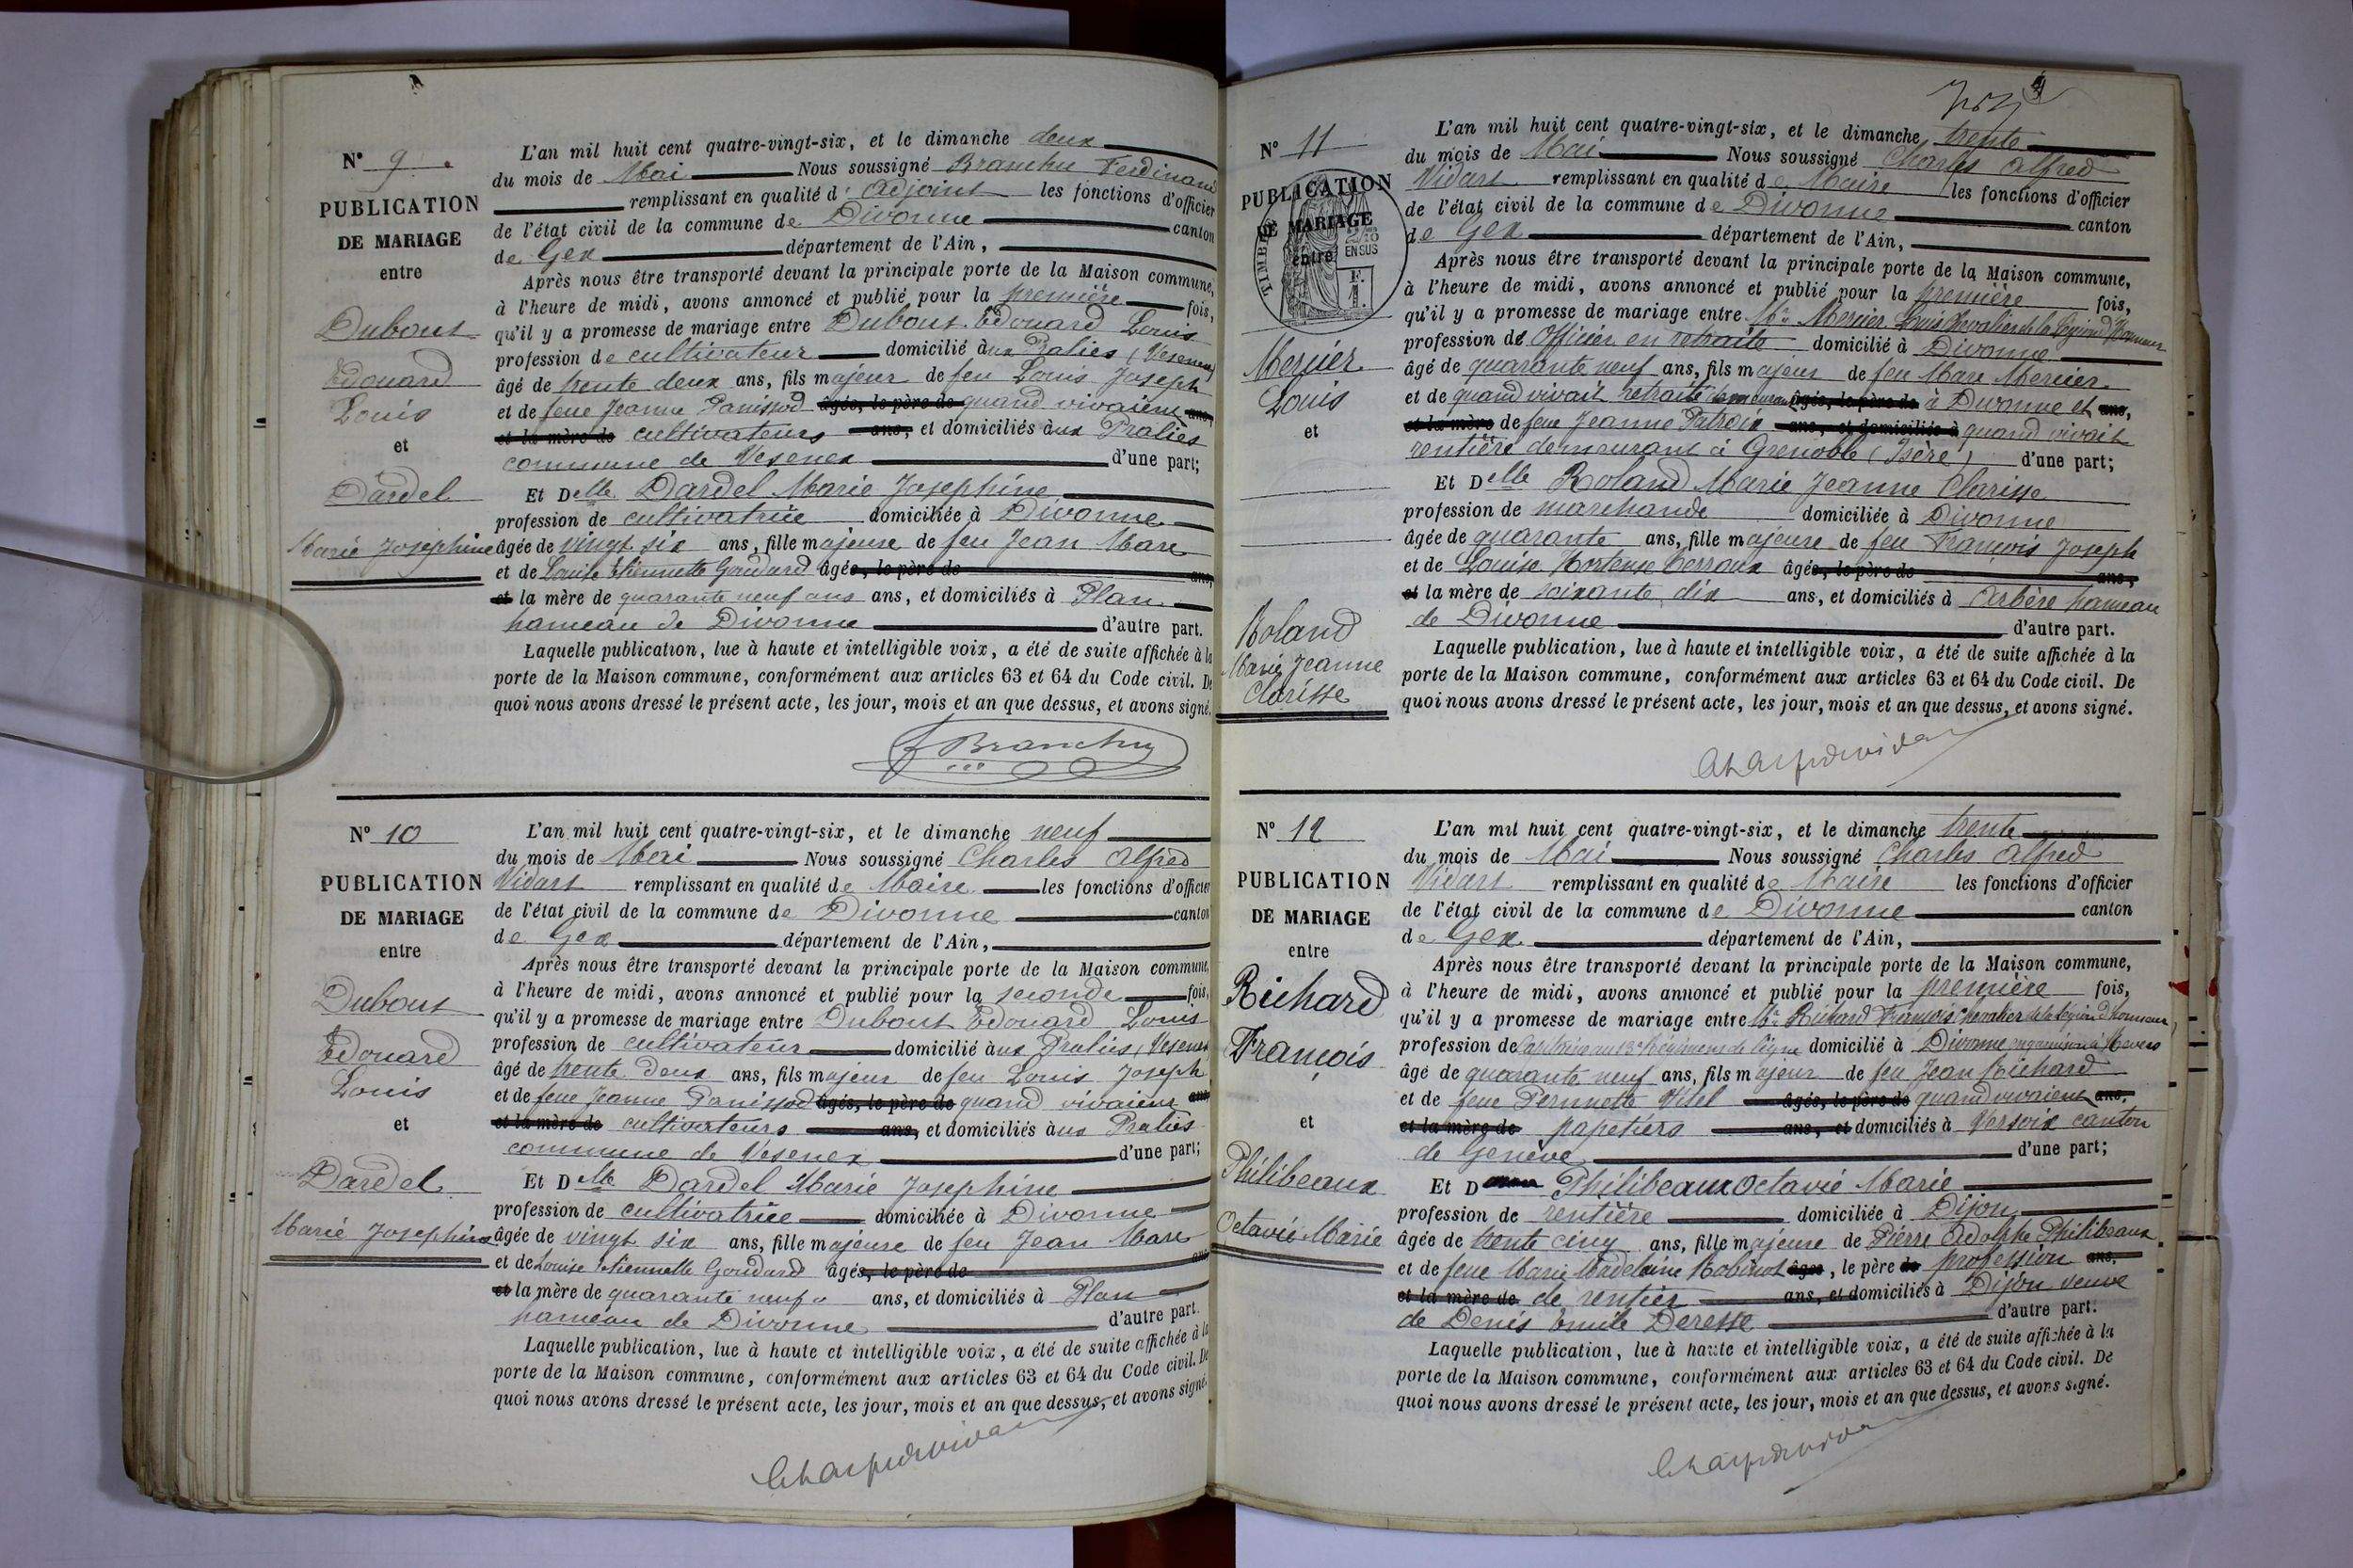 N° 9
PUBLICATION
DE MARIAGE
entre
Dubout
Edouard
Louis
et
Dardel
Marie Josephine
L'an mil huit cent quatre-vingt-six, et le dimanche deux
du mois de Mai Nous soussigné Branchu Ferdinand
remplissant en qualité d'Adjoint les fonctions d'officier
de l'état civil de la commune de Divonne canton
de Gex département de l'Ain,
Après nous être transporté devant la principale porte de la Maison commune,
à l'heure de midi, avons annoncé et publié pour la première fois,
qu'il y a promesse de mariage entre Dubout Edouard Louis
profession de cultivateur domicilié aux Pralies (Vesenex)
âgé de trente deux ans, fils majeur de feu Louis Joseph
et de feue Jeanne Panissod âgés, le père de quand vivaient ans,
et la mère de cultivateurs ans, et domiciliés aux Pralies
commune de Vesenex d'une part;
Et Delle Dardel Marie Josephine
profession de cultivatrice domiciliée à Divonne
âgée de vingt six ans, fille majeure de feu Jean Marc
et de Louise Etiennette Goudard âgés, le père de ans,
et la mère de quarante neuf ans ans, et domiciliés à Plan
hameau de Divonne d'autre part.
Laquelle publication, lue à haute et intelligible voix, a été de suite affichée à la
porte de la Maison commune, conformément aux articles 63 et 64 du Code civil. De
quoi nous avons dressé le présent acte, les jour, mois et an que dessus, et avons signé.
F Branchu
N° 10
PUBLICATION
DE MARIAGE
entre
Dubout
Edouard
Louis
et
Dardel
Marie Josephine
L'an mil huit cent quatre-vingt-six, et le dimanche neuf
du mois de Mai Nous soussigné Charles Alfred
Vidart remplissant en qualité de Maire les fonctions d'officier
de l'état civil de la commune de Divonne canton
de Gex département de l'Ain,
Après nous être transporté devant la principale porte de la Maison commune,
à l'heure de midi, avons annoncé et publié pour la seconde fois,
qu'il y a promesse de mariage entre Dubout Edouard Louis
profession de cultivateur domicilié aux Pralies, Vesenex
âgé de trente deux ans, fils majeur de feu Louis Joseph
et de feue Jeanne Panissod âgés, le père de quand vivaient ans,
et la mère de cultivateurs ans, et domiciliés aux Pralies
commune de Vesenex d'une part;
Et Delle Dardel Marie Josephine
profession de cultivatrice domiciliée à Divonne
âgée de vingt six ans, fille majeure de feu Jean Marc
et de Louise Etiennette Goudard âgés, le père de ans
et la mère de quarante neuf ans, et domiciliés à Plan
hameau de Divonne d'autre part.
Laquelle publication, lue à haute et intelligible voix, a été de suite affichée à la
porte de la Maison commune, conformément aux articles 63 et 64 du Code civil. De
quoi nous avons dressé le présent acte, les jour, mois et an que dessus, et avons signé.
N° 11
PUBLICATION
DE MARIAGE
entre
TIMBRE
2/10
EN SUS
F.
1.
Mercier
Louis
et
Roland
Marie Jeanne
Clarisse
L'an mil huit cent quatre-vingt-six, et le dimanche trente
du mois de Mai Nous soussigné Charles Alfred
Vidart remplissant en qualité de Maire les fonctions d'officier
de l'état civil de la commune de Divonne canton
de Gex département de l'Ain,
Après nous être transporté devant la principale porte de la Maison commune,
à l'heure de midi, avons annoncé et publié pour la première fois,
qu'il y a promesse de mariage entre Mr Mercier Louis Chevalier de la Légion d'Honneur
profession de Officier en retraite domicilié à Divonne
âgé de quarante neuf ans, fils majeur de feu Marc Mercier
et de quand vivait retraité demeurant âgés, le père de à Divonne et ans,
et la mère de feue Jeanne Patroix ans, et domiciliés à quand vivait
rentière demeurant à Grenoble (Isère) d'une part;
Et Delle Roland Marie Jeanne Clarisse
profession de marchande domiciliée à Divonne
âgée de quarante ans, fille majeure de feu François Joseph
et de Louise Hortense Cerroux âgés, le père de ans,
et la mère de soixante dix ans, et domiciliés à Arbère hameau
de Divonne d'autre part.
Laquelle publication, lue à haute et intelligible voix, a été de suite affichée à la
porte de la Maison commune, conformément aux articles 63 et 64 du Code civil. De
quoi nous avons dressé le présent acte, les jour, mois et an que dessus, et avons signé.
N° 12
PUBLICATION
DE MARIAGE
entre
Richard
François
et
Philibeaux
Octavie Marie
L'an mil huit cent quatre-vingt-six, et le dimanche trente
du mois de Mai Nous soussigné Charles Alfred
Vidart remplissant en qualité de Maire les fonctions d'officier
de l'état civil de la commune de Divonne canton
de Gex département de l'Ain,
Après nous être transporté devant la principale porte de la Maison commune,
à l'heure de midi, avons annoncé et publié pour la première fois,
qu'il y a promesse de mariage entre Mr Richard François Chevalier de la Légion d'honneur,
profession de Capitaine au 13e Régiment de ligne domicilié à Divonne en garnison à Nevers
âgé de quarante neuf ans, fils majeur de feu Jean Richard
et de feue Pernette Vitel âgés, le père de quand vivaient ans,
et la mère de papetiers ans, et domiciliés à Versoix canton
de Genève d'une part;
Et D Philibeaux Octavie Marie
profession de rentière domiciliée à Dijon
âgée de trente cinq ans, fille majeure de Pierre Adolphe Philibeaux
et de feue Marie Madeleine Robinot âgés, le père de profession ans,
et la mère de de rentier ans, et domiciliés à Dijon veuve
de Denis Emile Deresse d'autre part.
Laquelle publication, lue à haute et intelligible voix, a été de suite affichée à la
porte de la Maison commune, conformément aux articles 63 et 64 du Code civil. De
quoi nous avons dressé le présent acte, les jour, mois et an que dessus, et avons signé.